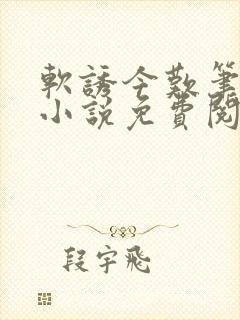 軟誘今歎筆
小說免費閱
段宇飛